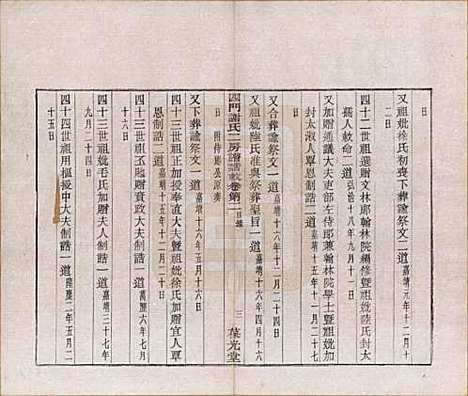 日
又祖妣徐氏初喪下葬諭祭文二道嘉靖元年十二月十
二日
四十二世祖選贈文林郎翰林院編修暨祖妣陸氏封太
孺人敕命二道弘治十八年九月十一日
又加贈通議大夫吏部左侍郎兼翰林院學士暨祖妣加
封太淑人單恩制誥二道嘉靖十五年十一月二十七
日
又合葬諭祭文一道嘉靖十八年十二月二十四日
又祖妣陸氏准與祭葬聖旨一道嘉靖十六年四月十六
日附侍郎公原奏
四門謝氏二房譜誥敕卷第一目錄
三
葆光堂
又下葬諭祭文一道嘉靖十六年五月十六日
四十三世祖正加授奉直大夫暨祖妣徐氏加贈宜人單
恩制誥二道嘉靖十五年十二月二十日
四十三世祖丕賜贈資政大夫制誥一道萬曆六年七月
十六日
四十三世祖妣毛氏加贈夫人制誥一道嘉靖三十七年
九月二十四日
四十四世祖用樞授中大夫制誥一道隆慶二年五月二
十五日